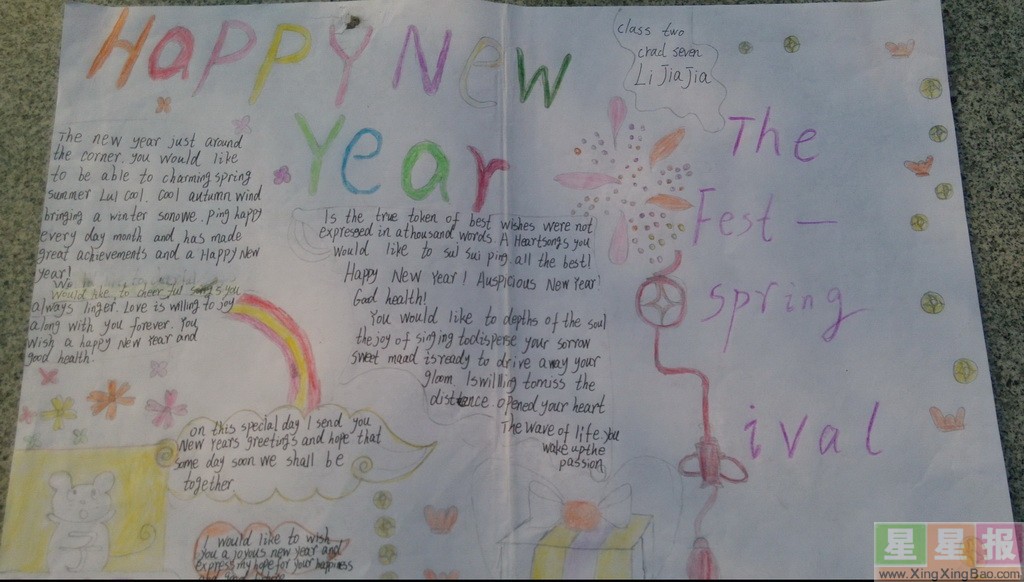 Happy New
Year
class two
crad seven
Li Jia Jia
The
Fest —
spring
ival
The new year just around
the corner. you would like
to be able to charming spring
summer Lul cool. Cool autumn wind
bringing a winter sonowe. ping happy
every day month and has made
great achievements and a Happy New
year!
We
would like to cheer ful songs you
always linger. Love is willing to joy
along with you forever. You
wish a happy New Year and
good health!
Is the true token of best wishes were not
expressed in athousand words. A Heartsongs you
would like to sui sui ping. all the best!
Happy New Year! Auspicious New Year!
God health!
You would like to depths of the soul
the joy of singing todisperse your sorrow
sweet maand isready to drive away your
gloom. Iswillling tomiss the
distence opened your heart
The wave of life you
wake upthe
passion
on this special day I send you
New Years greetings and hope that
some day soon we shall be
together
I would like to wish
you a joyous new year and
express my hope for your happiness
and good
星星报
www.XingXingBao.com